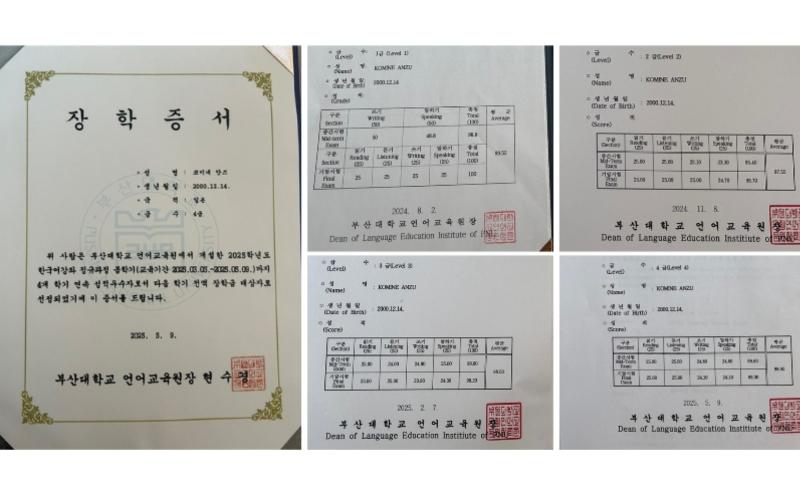 장 학 증 서
성 명 : 코미네 안즈
생 년 월 일 : 2000.12.14.
국 적 : 일본
급 수 : 4급
위 사람은 부산대학교 언어교육원에서 개설한 2025학년도
한국어강좌 정규과정 봄학기(교육기간 2025.03.05.~2025.05.09.)까지
4개 학기 연속 성적우수자로서 다음 학기 전액 장학금 대상자로
선정되었기에 이 증서를 드립니다.
2025. 5. 9.
부산대학교 언어교육원장 현 수 정
급 수 : 1급(Level 1)
(Level)
성 명 : KOMINE ANZU
(Name)
생 년 월 일 : 2000.12.14
(Date of Birth)
성 적
(Grade)
구분 Section 쓰기 Writing (50) 말하기 Speaking (50) 총점 Total (100) 평균 Average
중간시험 Mid-term Exam 50
구분 Section 읽기 Reading (25) 듣기 Listening (25) 쓰기 Writing (25) 말하기 Speaking (25) 총점 Total (100)
기말시험 Final Exam 25 25 25 25 100
2024. 8. 2.
부산대학교 언어교육원장
Dean of Language Education Institute of PNU
급 수 : 2급(Level 2)
(Level)
성 명 : KOMINE ANZU
(Name)
생 년 월 일 : 2000.12.14.
(Date of Birth)
성 적
(Score)
구분 (Section) 읽기 Reading (25) 듣기 Listening (25) 쓰기 Writing (25) 말하기 Speaking (25) 총점 Total (100) 평균 Average
중간시험 Mid-Term Exam 25.00 25.00
기말시험 Final Exam 25.00 25.00 24.70
2024. 11. 8.
부산대학교 언어교육원장
Dean of Language Education Institute of PNU
급 수 : 3급(Level 3)
(Level)
성 명 : KOMINE ANZU
(Name)
생 년 월 일 : 2000.12.14.
(Date of Birth)
성 적
(Score)
구분 (Section) 읽기 Reading (25) 듣기 Listening (25) 쓰기 Writing (25) 말하기 Speaking (25) 총점 Total (100) 평균 Average
중간시험 Mid-Term Exam
기말시험 Final Exam
2025. 2. 7.
부산대학교 언어교육원장
Dean of Language Education Institiute of PNU
급 수 : 4급(Level 4)
(Level)
성 명 : KOMINE ANZU
(Name)
생 년 월 일 : 2000.12.14.
(Date of Birth)
성 적
(Score)
구분 (Section) 읽기 Reading (25) 듣기 Listening (25) 쓰기 Writing (25) 말하기 Speaking (25) 총점 Total (100) 평균 Average
중간시험 Mid-Term Exam 25.00 25.00
기말시험 Final Exam 25.00 25.00
2025. 5. 9.
부산대학교 언어교육원장
Dean of Language Education Institiute of PNU